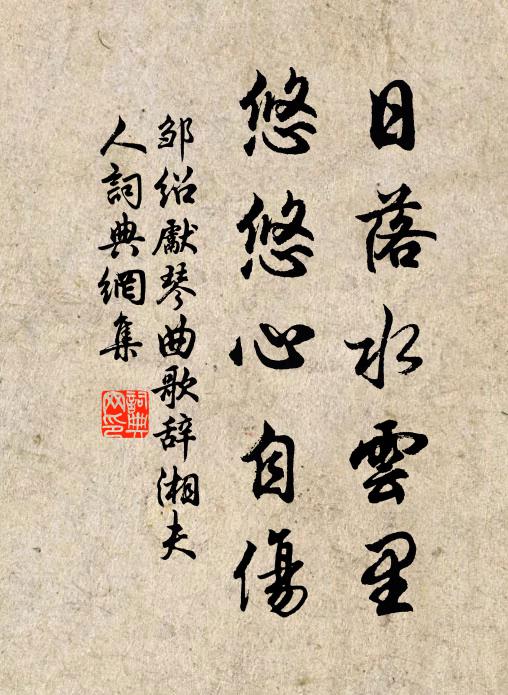 日落水雲里
悠悠心自傷
邹绍獻琴曲歌辞湘夫
人詞典網集
詞典网印